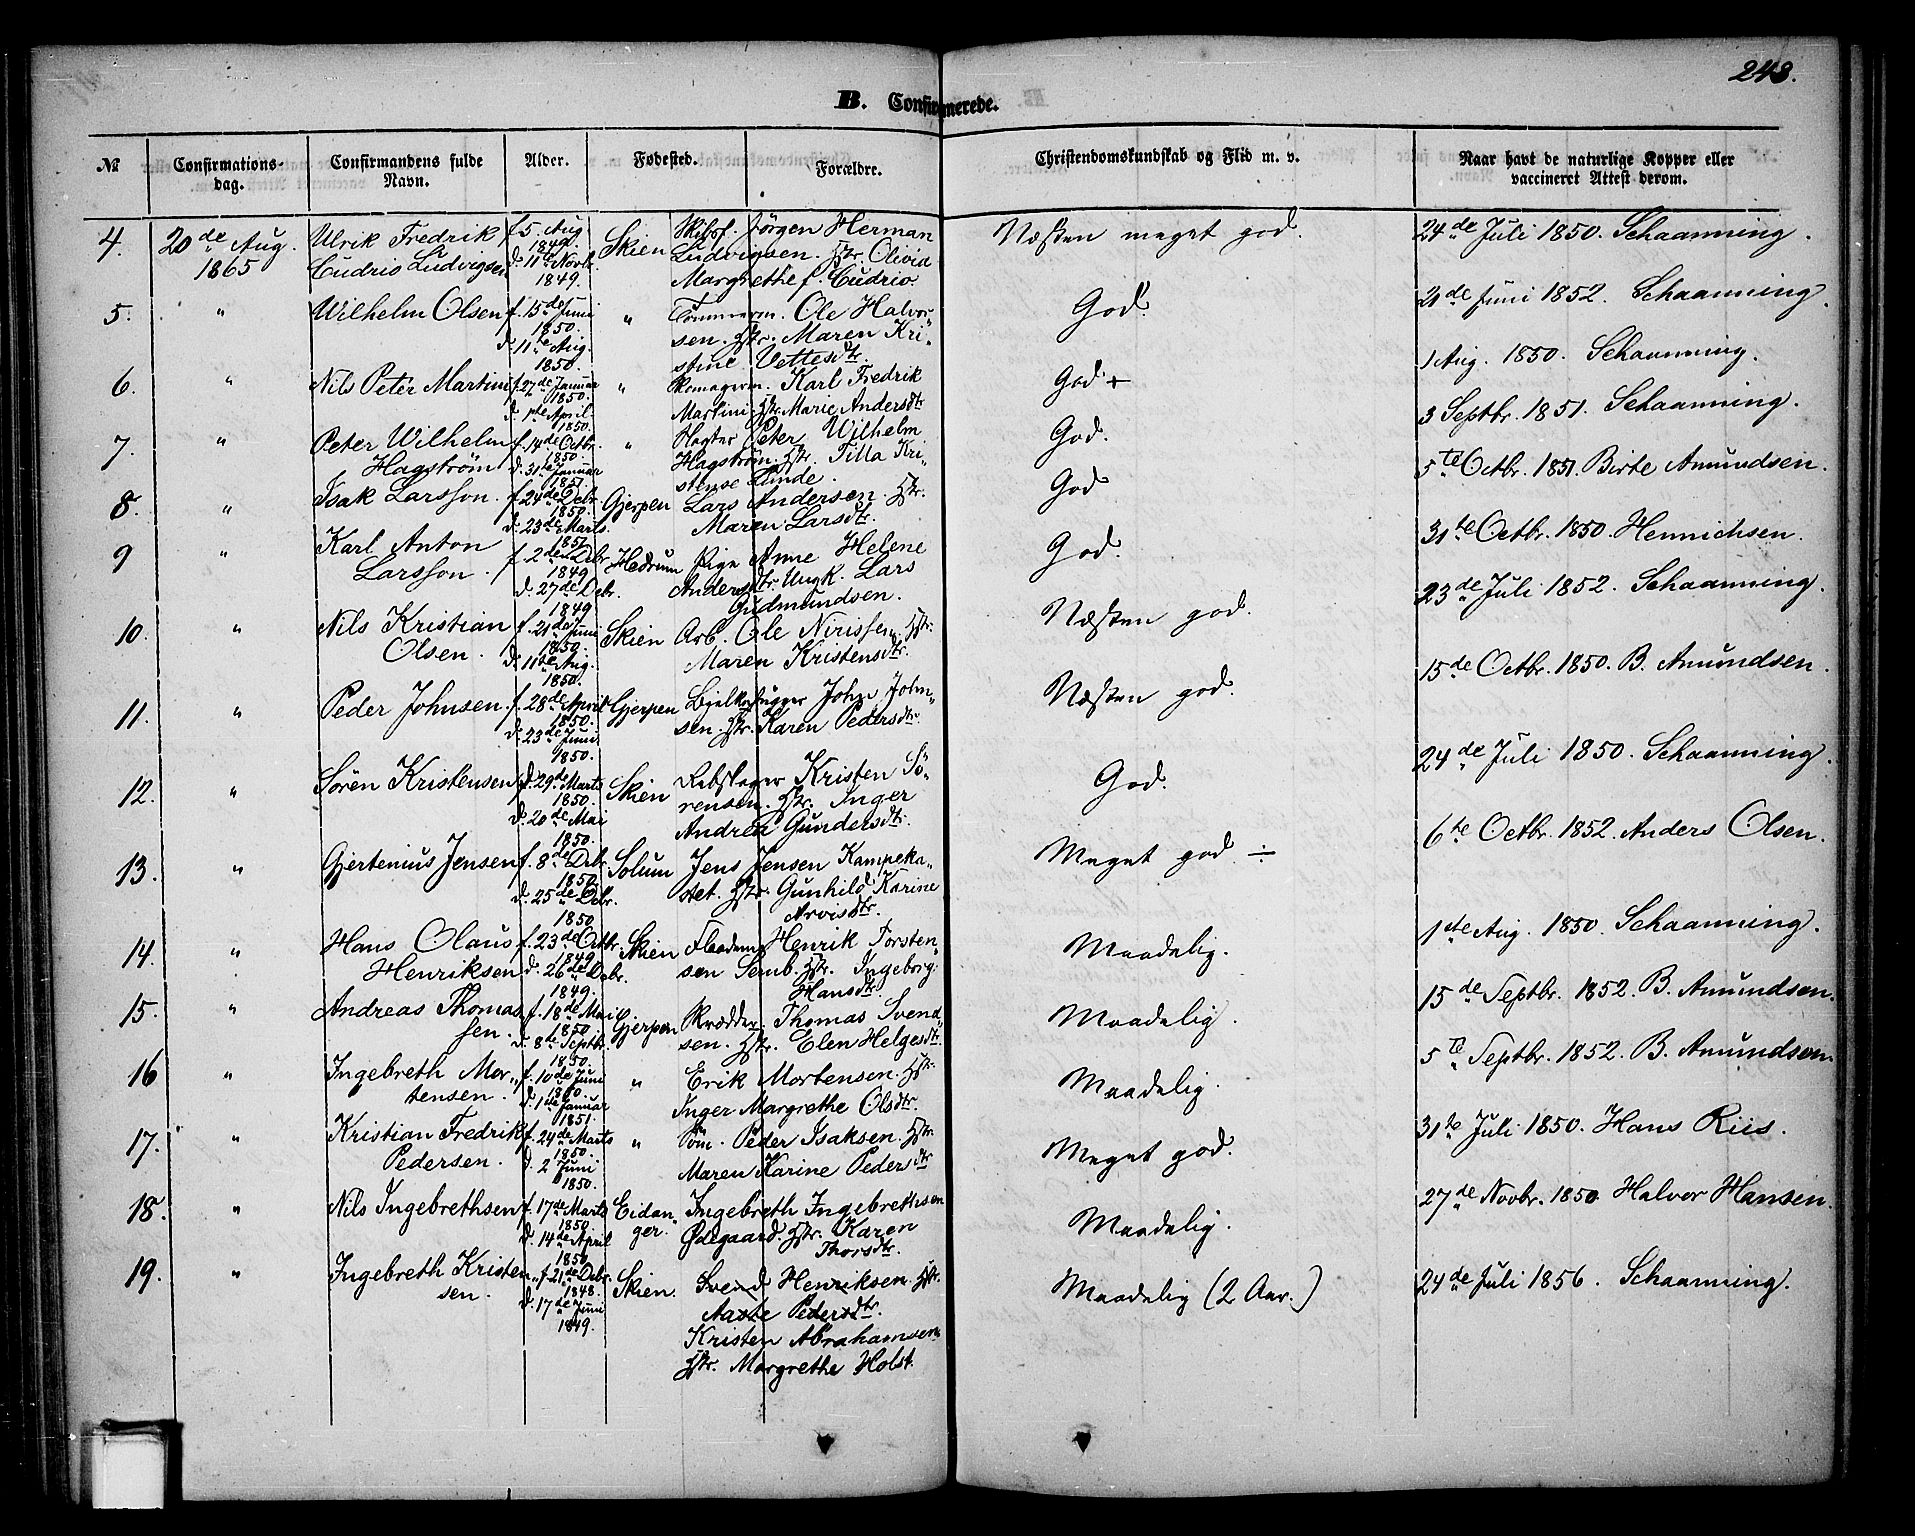 248.
B. Confirmerede.
№ Confirmations- dag. Confirmandens fulde Navn. Alder. Fødested. Forældre. Christendomskundskab og Flid m. v. Naar havt de naturlige Kopper eller vaccineret Attest derom.
4. 20de Aug. 1865 Ulrik Fredrik f. 5. Aug. 1849. Skien Skibsf. Jørgen Herman Næsten meget god. 24de Juli 1850. Schaanning.
Cudrio Ludvigsen d. 11te Novbr. 1849. Ludvigsen. Hstr. Olivia
Margrethe f. Cudrio.
5. " Wilhelm Olsen f. 15de Juni 1850. " Tømmerm. Ole Halvor- God. 21de Juni 1852. Schaanning.
d. 11te Aug. 1850. sen. Hstr. Maren Kri-
stine Vettesdtr.
6. " Nils Peter Martini f. 27de Januar 1850. " Skomagerm. Karl Fredrik God + 1 Aug. 1850. Schaanning.
d. 1ste April 1850. Martini. Hstr. Marie Andersdtr
7. " Peter Wilhelm f. 14de Octbr. 1850. " Peter Wilhelm God. 3 Septbr. 1851. Schaanning.
Hagstrøm d. 31te Januar 1851. Hagstrøm. Hstr. Tilla Kri-
stense Lunde.
8. " Isak Larsson. f. 24de Debr. 1850. Gjerpen Lars Andersen. Hstr. God 5te Octbr. 1851. Birte Amundsen.
d. 23de Marts 1851. Maren Larsdtr.
9 " Karl Anton f. 2den Debr. 1849 Hedrum Pige Anne Helene God. 31te Octbr. 1850 Hennichsen.
Larsson. d. 27de Debr. 1849 Andersdtr. Ungk. Lars
Gudmundsen.
10. " Nils Kristian f. 21de Juni 1850. Skien Arb. Ole Nirissen. Hstr. Næsten god. 23de Juli 1852. Schaanning.
Olsen. d. 11te Aug. 1850. Maren Kristensdtr.
11. " Peder Johnsen. f. 28de April 1850. Gjerpen Bjelkehugger John John- Næsten god. 15de Octbr. 1850. B. Amundsen.
d. 23de Juni 1850. sen. Hstr. Karen Pedersdtr.
12. " Søren Kristensen f. 29de Marts 1850. Skien Rebslager Kristen Sø- God. 24de Juli 1850. Schaanning.
d. 20de Mai 1850. rensen. Hstr. Inger
Andrea Gundersdtr.
13. " Gjertenius Jensen f. 8de Debr. 1850. Solum Jens Jensen Kampeka- Meget god ÷ 6te Octbr. 1852. Anders Olsen.
d. 25de Debr. 1850 stet. Hstr. Gunhild Karine
Arvisdtr.
14. " Hans Olaus f. 23de Octbr. 1849 Skien Henrik Torsten- Maadelig. 1ste Aug. 1850. Schaanning.
Henriksen d. 26de Debr. 1849. sen Semb. Hstr. Ingeborg
Hansdtr.
15. " Andreas Thomas- f. 18de Mai 1850. Gjerpen Skrædder. Thomas Svend- Maadelig. 15de Septbr. 1852. B. Amundsen.
sen. d. 8de Septbr. 1850. sen. Hstr. Elen Helgesdtr.
16 " Ingebreth Mor- f. 10de Juni 1850. " Erik Mortensen. Hstr. Maadelig. 5te Septbr. 1852. B. Amundsen.
tensen. d. 1ste Januar 1851. Inger Margrethe Olsdtr.
17. " Kristian Fredrik f. 24de Marts 1850. " Tøm. Peder Isaksen. Hstr. Meget god. 31te Juli 1850. Hans Riis.
Pedersen. d. 2 Juni 1850. Maren Karine Pedersdtr
18. " Nils Ingebrethsen f. 17de Marts 1850. Eidan- Ingebreth Ingebrethsen Maadelig. 27de Novbr. 1850 Halvor Hansen.
d. 14de April 1850 ger. Ødegaard. Hstr. Karen
Thorsdtr.
19. " Ingebreth Kristen- f. 21de Debr. 1848. Skien. Svend Henriksen. Hstr. Maadelig (2 Aar.) 24de Juli 1856. Schaanning.
sen. d. 17de Juni 1849. Aaste Pedersdtr.
Kristen Abrahamsen.
Hstr. Margrethe Holst.